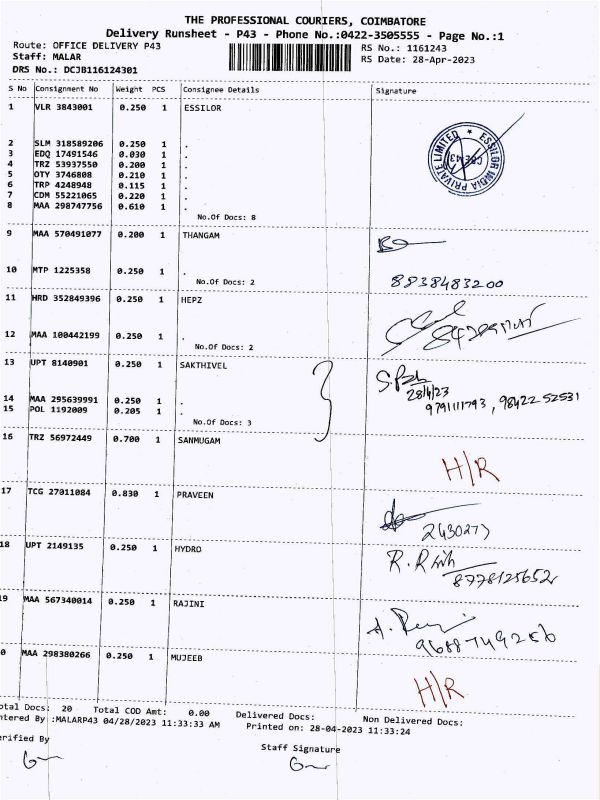 THE PROFESSIONAL COURIERS, COIMBATORE
Delivery Runsheet - P43 - Phone No.:0422-3505555 - Page No.:1
Route: OFFICE DELIVERY P43 RS No.: 1161243
Staff: MALAR RS Date: 28-Apr-2023
DRS No.: DCJB116124301
S No Consignment No Weight PCS Consignee Details Signature
1 VLR 3843001 0.250 1 ESSILOR
ESSILOR INDIA PRIVATE LIMITED ★
CBE43
2 SLM 318589206 0.250 1 .
3 EDQ 17491546 0.030 1 .
4 TRZ 53937550 0.200 1 .
5 OTY 3746808 0.210 1 .
6 TRP 4248948 0.115 1 .
7 CDM 55221065 0.220 1 .
8 MAA 298747756 0.610 1 .
No.Of Docs: 8
9 MAA 570491077 0.200 1 THANGAM
10 MTP 1225358 0.250 1 .
No.Of Docs: 2 8838483200
11 HRD 352849396 0.250 1 HEPZ
12 MAA 100442199 0.250 1 .
No.Of Docs: 2
13 UPT 8140901 0.250 1 SAKTHIVEL
28/4/23
14 MAA 295639991 0.250 1 .
9791111793, 98422 52531
15 POL 1192009 0.205 1 .
No.Of Docs: 3
16 TRZ 56972449 0.700 1 SANMUGAM
H/R
17 TCG 27011084 0.830 1 PRAVEEN
2430277
18 UPT 2149135 0.250 1 HYDRO
8778125652
19 MAA 567340014 0.250 1 RAJINI
9688749256
0 MAA 298380266 0.250 1 MUJEEB
H/R
otal Docs: 20 Total COD Amt: 0.00 Delivered Docs: Non Delivered Docs:
ntered By :MALARP43 04/28/2023 11:33:33 AM Printed on: 28-04-2023 11:33:24
erified By Staff Signature